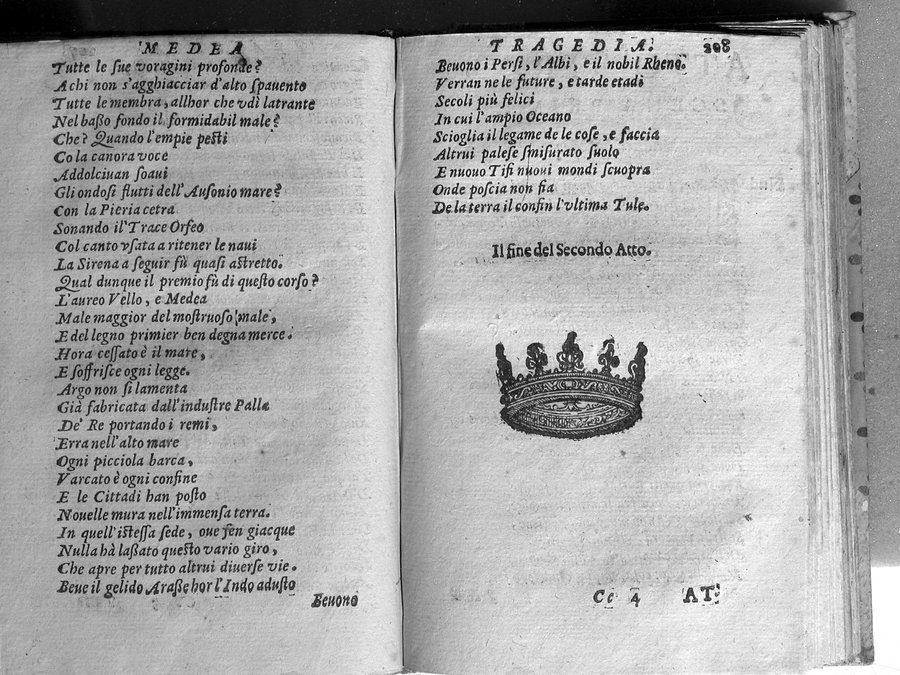 MEDEA
Tutte le ſue voragini profonde?
A chi non s'agghiacciar d'alto ſpauento
Tutte le membra, allhor che vdì latrante
Nel baßo fondo il formidabil male?
Che? Quando l'empie peſti
Co la canora voce
Addolciuan ſoaui
Gli ondoſi flutti dell'Auſonio mare?
Con la Pieria cetra
Sonando il Trace Orfeo
Col canto vſata a ritener le naui
La Sirena a ſeguir fù quaſi aſtretto.
Qual dunque il premio fù di queſto corſo?
L'aureo Vello, e Medea
Male maggior del moſtruoſo male,
E del legno primier ben degna merce.
Hora ceſſato è il mare,
E ſoffriſce ogni legge.
Argo non ſi lamenta
Già fabricata dall'induſtre Palla
De' Re portando i remi,
Erra nell'alto mare
Ogni picciola barca,
Varcato è ogni confine
E le Cittadi han poſto
Nouelle mura nell'immenſa terra.
In quell'iſteſſa ſede, oue ſen giacque
Nulla hà laßato queſto vario giro,
Che apre per tutto altrui diuerſe vie.
Beue il gelido Araße hor l'Indo aduſto
Beuono
TRAGEDIA. 208
Beuono i Perſi, l'Albi, e il nobil Rheno.
Verran ne le future, e tarde etadi
Secoli più felici
In cui l'ampio Oceano
Scioglia il legame de le coſe, e faccia
Altrui paleſe ſmiſurato ſuolo
E nuouo Tifi nuoui mondi ſcuopra
Onde poſcia non fia
De la terra il confin l'vltima Tule.
Il fine del Secondo Atto.
Cc 4 AT.